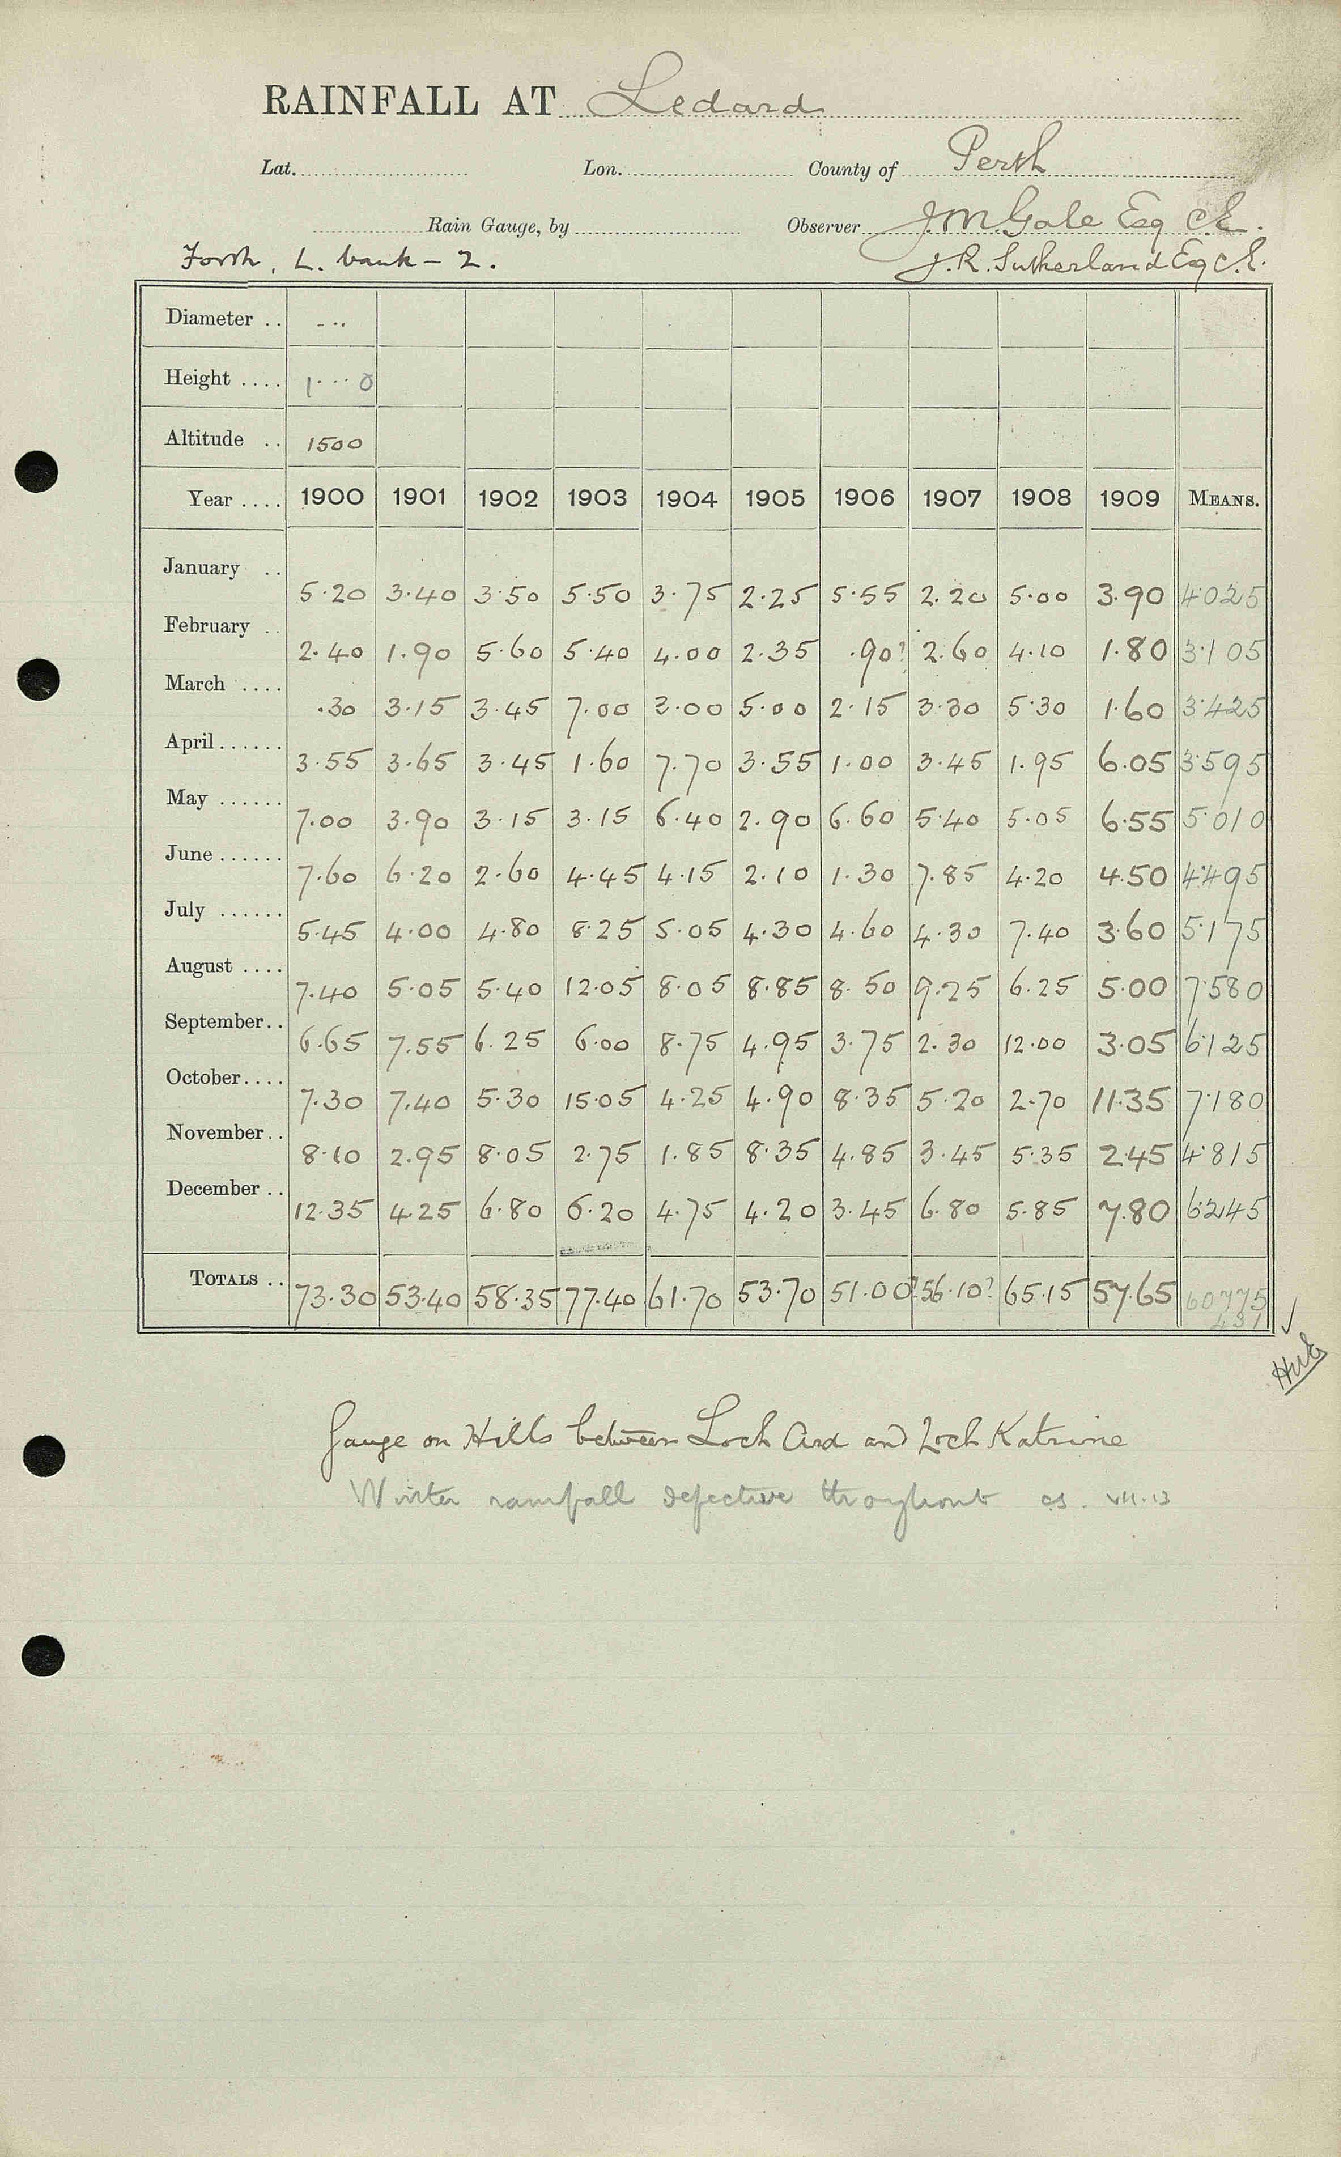 RAINFALL AT Ledard
Lat. Lon. County of Perth
Rain Gauge, by Observer J M Gale Esq C.E.
Forth, L. bank - 2. J. R. Sutherland Esq C.E.
Diameter .. - ..
Height .... 1 ... 0
Altitude .. 1500
Year .... 1900 1901 1902 1903 1904 1905 1906 1907 1908 1909 MEANS.
January .. 5.20 3.40 3.50 5.50 3.75 2.25 5.55 2.20 5.00 3.90 4.025
February .. 2.40 1.90 5.60 5.40 4.00 2.35 .90? 2.60 4.10 1.80 3.105
March .... .30 3.15 3.45 7.00 3.00 5.00 2.15 3.30 5.30 1.60 3.425
April ...... 3.55 3.65 3.45 1.60 7.70 3.55 1.00 3.45 1.95 6.05 3.595
May ...... 7.00 3.90 3.15 3.15 6.40 2.90 6.60 5.40 5.05 6.55 5.010
June ...... 7.60 6.20 2.60 4.45 4.15 2.10 1.30 7.85 4.20 4.50 4.495
July ...... 5.45 4.00 4.80 8.25 5.05 4.30 4.60 4.30 7.40 3.60 5.175
August .... 7.40 5.05 5.40 12.05 8.05 8.85 8.50 9.25 6.25 5.00 7.580
September .. 6.65 7.55 6.25 6.00 8.75 4.95 3.75 2.30 12.00 3.05 6.125
October .... 7.30 7.40 5.30 15.05 4.25 4.90 8.35 5.20 2.70 11.35 7.180
November .. 8.10 2.95 8.05 2.75 1.85 8.35 4.85 3.45 5.35 2.45 4.815
December .. 12.35 4.25 6.80 6.20 4.75 4.20 3.45 6.80 5.85 7.80 6.245
TOTALS .. 73.30 53.40 58.35 77.40 61.70 53.70 51.00? 56.10? 65.15 57.65 60.775
431
Gauge on Hills between Loch Ard and Loch Katrine
Winter rainfall defective throughout cs. VII.13